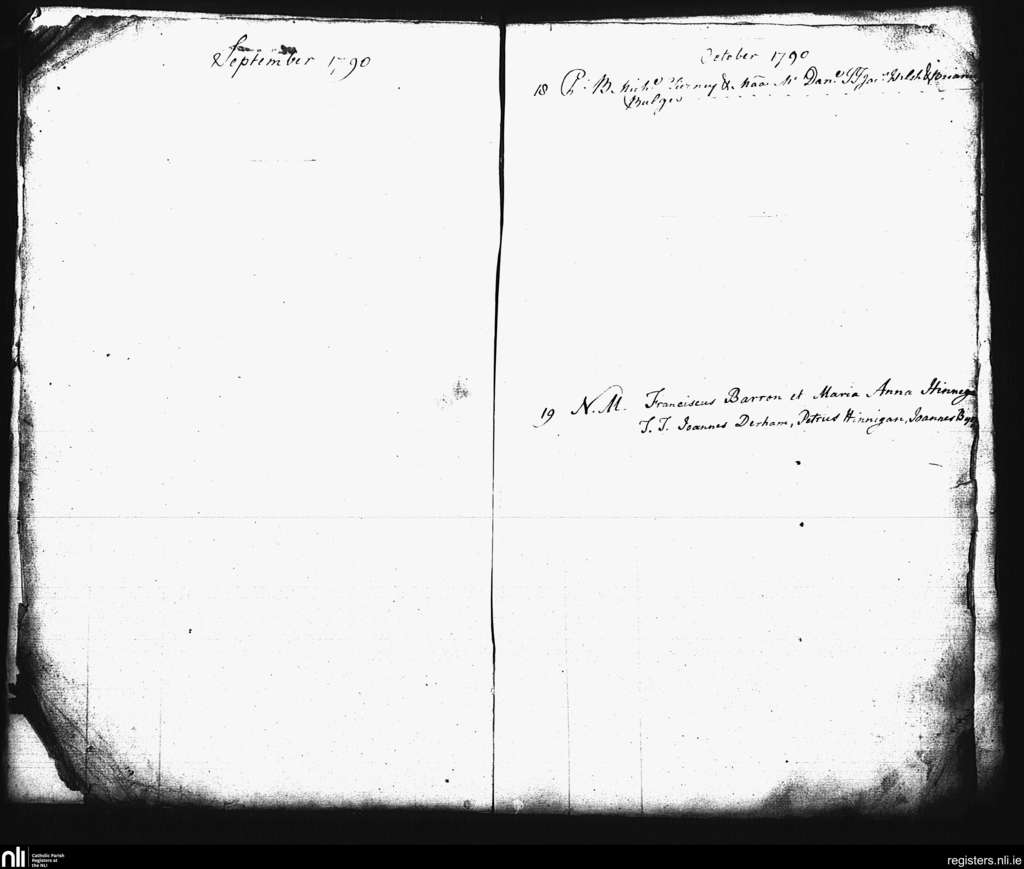 September 1790
October 1790
18 P. B. Mich.l & Dan.l TT Jac.
Bulger
19 N. M. Franciscus Barron et Maria Anna
T. T. Joannes Derham, Petrus Hinnigan, Joannes
nli Catholic Parish
Registers at
the NLI
registers.nli.ie